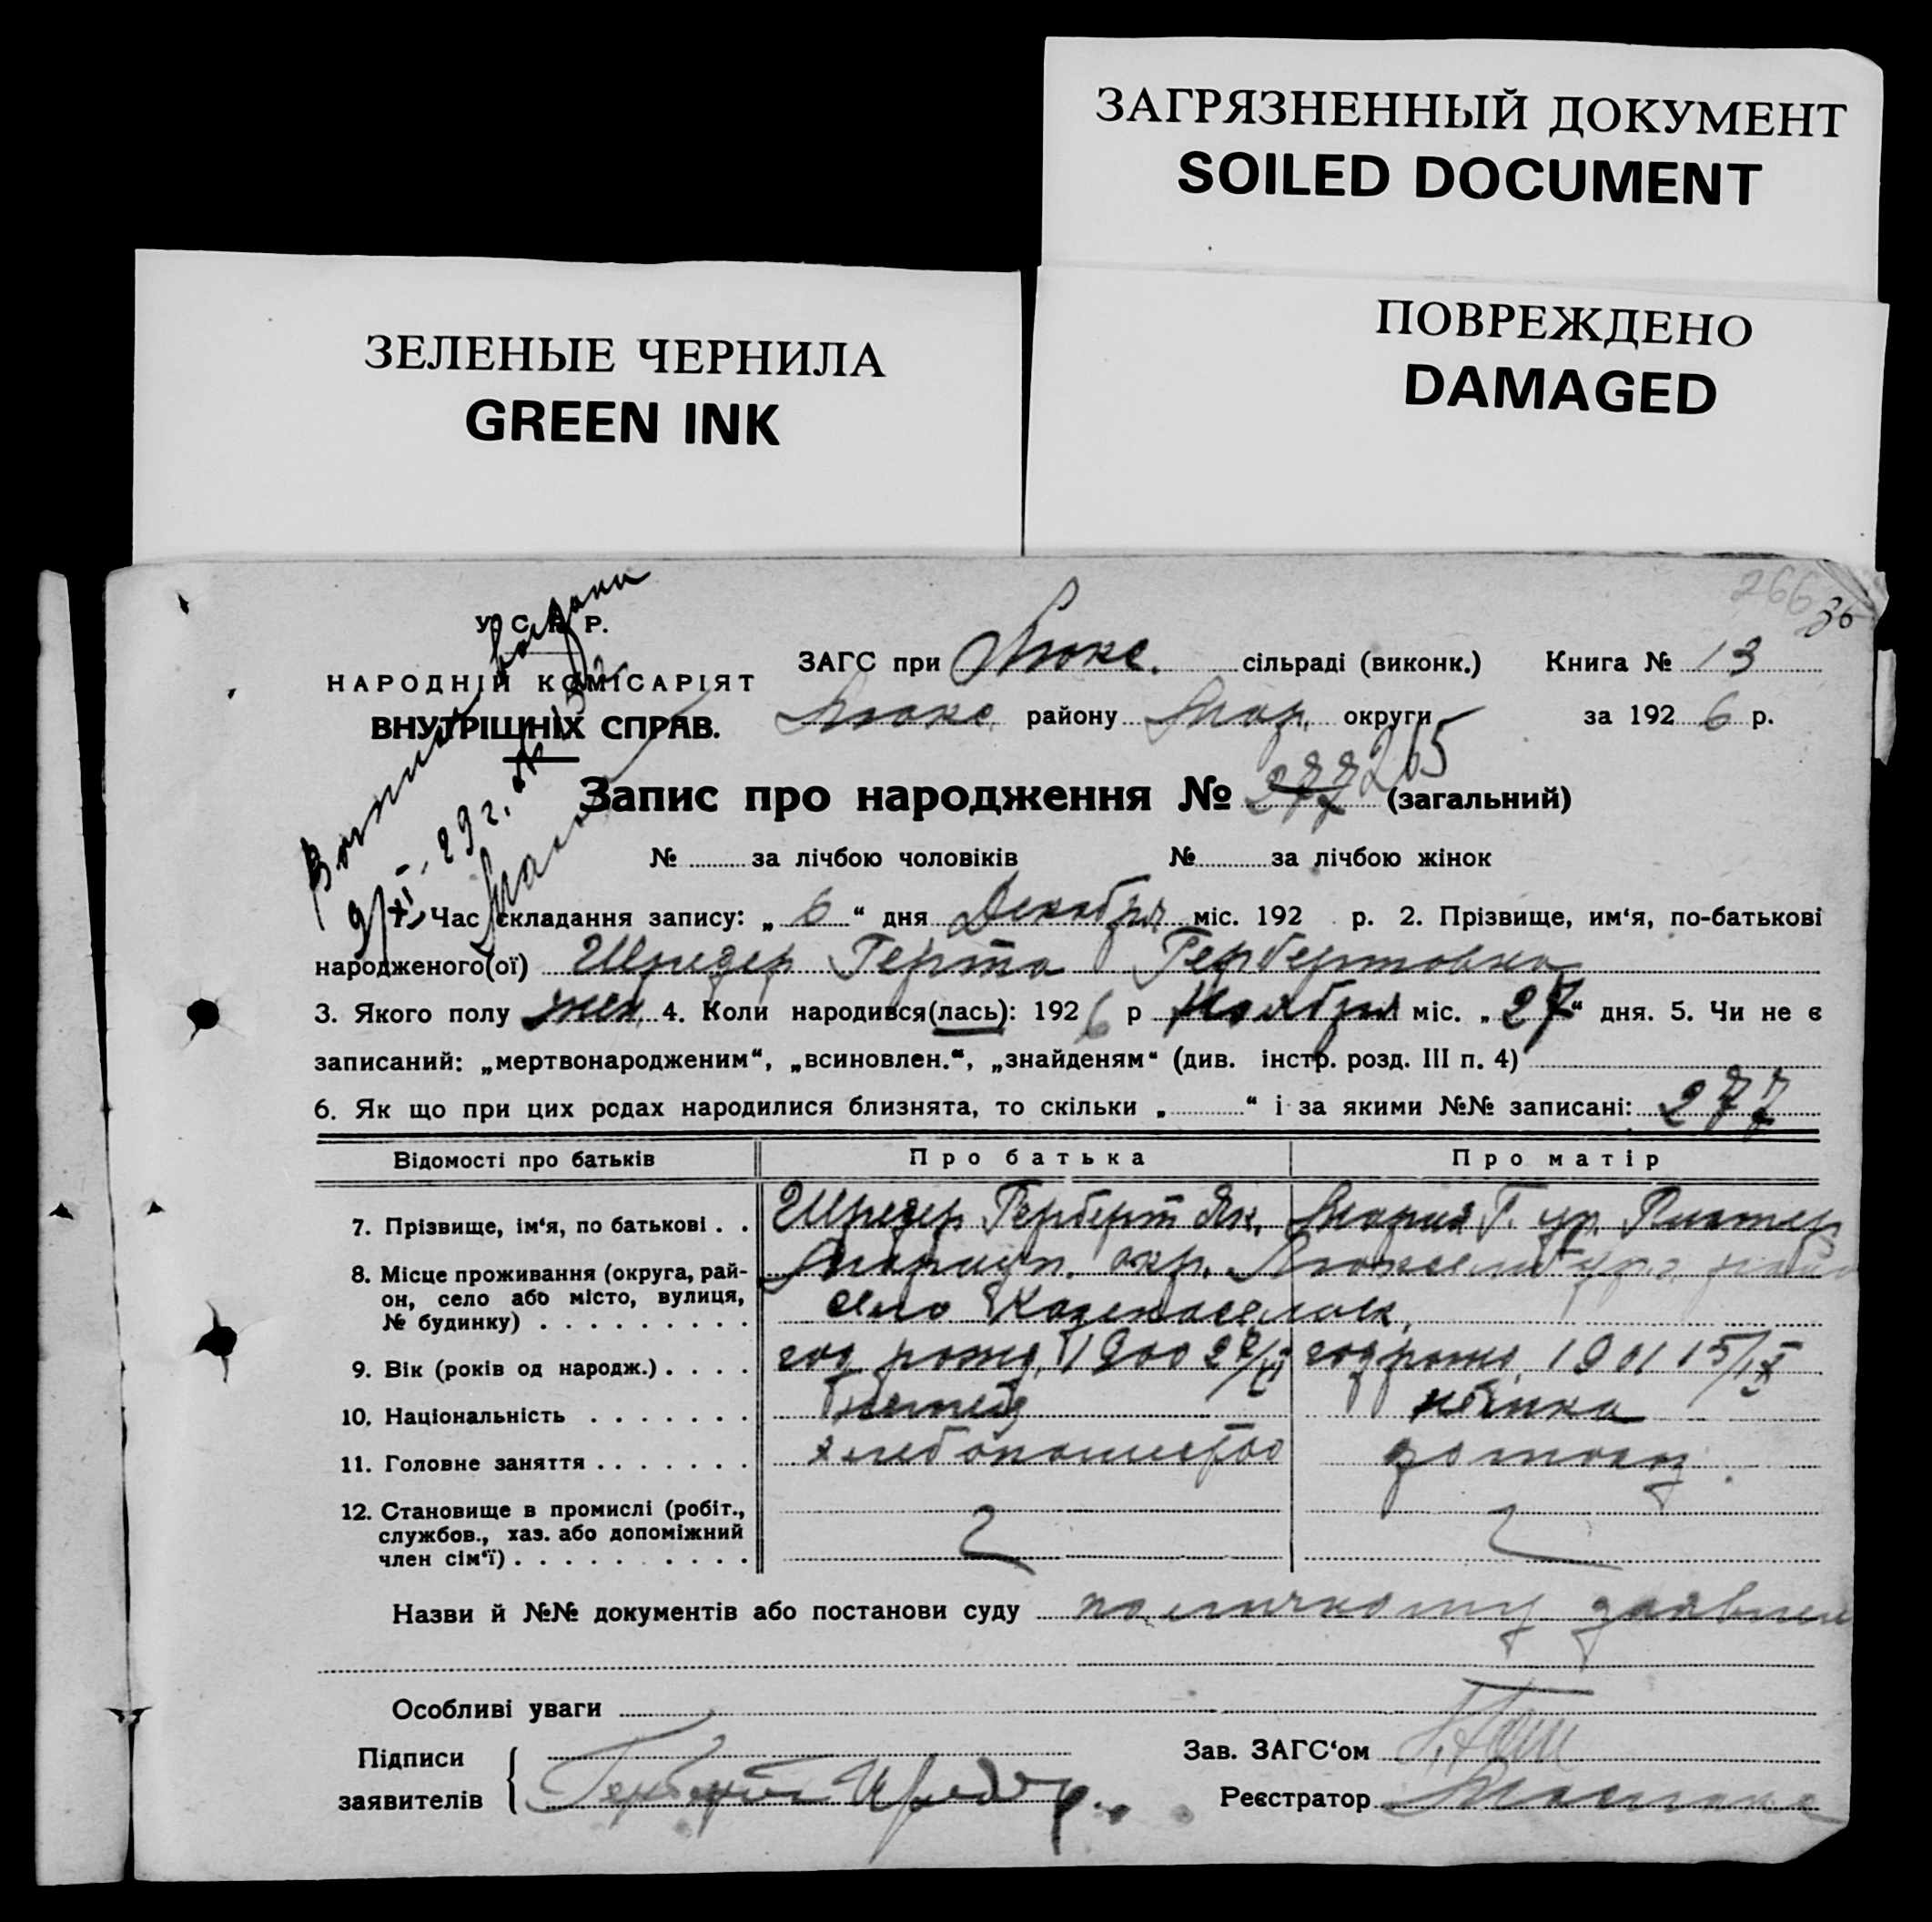 ЗАГРЯЗНЕННЫЙ ДОКУМЕНТ
SOILED DOCUMENT
ЗЕЛЕНЫЕ ЧЕРНИЛА
GREEN INK
ПОВРЕЖДЕНО
DAMAGED
266
36
У. С. Р. Р.
НАРОДНІЙ КОМІСАРІЯТ
ВНУТРІШНІХ СПРАВ.
ЗАГС при Люкс. сільраді (виконк.) Книга № 13
Люкс. району Мар. округи за 192 6 р.
Запис про народження № 277 265 (загальний)
№ за лічбою чоловіків № за лічбою жінок
1. Час складання запису: „ 6 “ дня Декабря міс. 192 р. 2. Прізвище, им‘я, по-батькові
народженого(ої) Шредер Герта Гербертовна
3. Якого полу жен. 4. Коли народився(лась): 192 6 р Ноября міс. „ 27 “ дня. 5. Чи не є
записаний: „мертвонародженим“, „всиновлен.“, „знайденям“ (див. інстр. розд. III п. 4)
6. Як що при цих родах народилися близнята, то скільки „ “ і за якими №№ записані: 277
Відомості про батьків Про батька Про матір
7. Прізвище, ім‘я, по батькові . . Шредер Герберт Як. Мария Г. ур.
8. Місце проживання (округа, рай-
он, село або місто, вулиця,
№ будинку) . . . . . . . . . Мариуп. окр. Люксембург.
село
9. Вік (років од народж.) . . . . год рожд. 1900 год рожд. 1901 15/IX
10. Національність . . . . . . . немец немка
11. Головне заняття . . . . . . . хлебопашество домохоз.
12. Становище в промислі (робіт.,
службов., хаз. або допоміжний
член сім‘ї) . . . . . . . . . . 2 2
Назви й №№ документів або постанови суду по личному заявлен
Особливі уваги
Підписи
заявителів Герберт Шредер
Зав. ЗАГС‘ом
Реєстратор